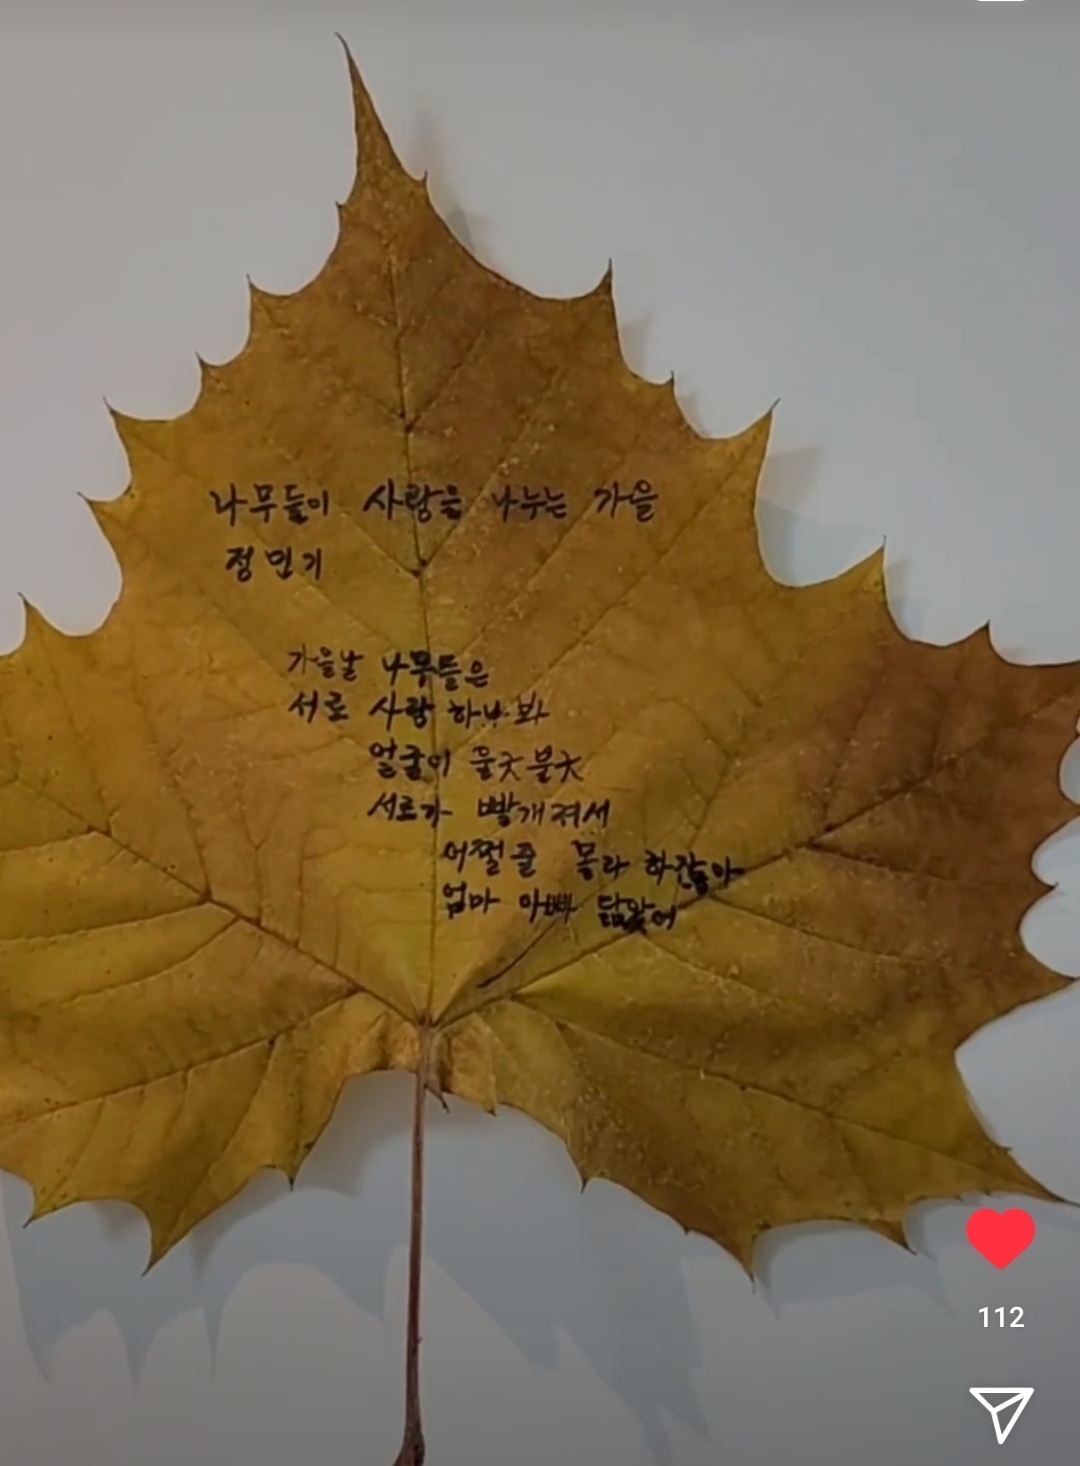 나무들이 사랑을 나누는 가을
정민기
가을날 나무들은
서로 사랑 하나 봐
얼굴이 울긋불긋
서로가 빨개져서
어쩔 줄 몰라 하잖아
엄마 아빠 닮았어
112